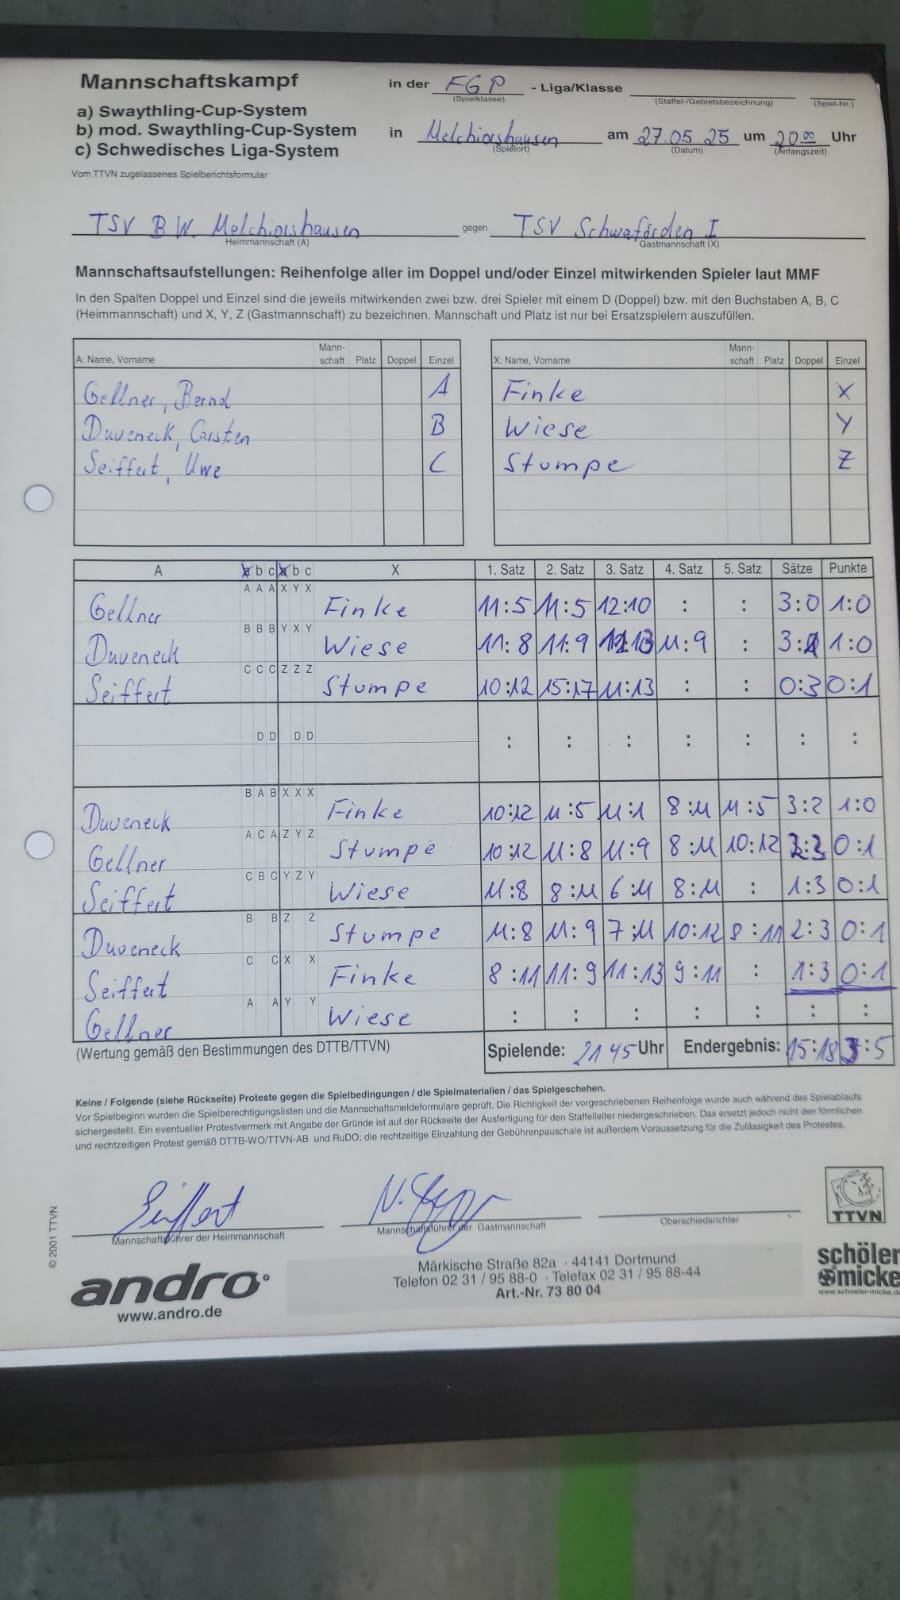 Mannschaftskampf in der FGP - Liga/Klasse
(Spielklasse) (Staffel-/Gebietsbezeichnung) (Spiel-Nr.)
a) Swaythling-Cup-System
b) mod. Swaythling-Cup-System in Melchiorshausen am 27.05 25 um 20⁰⁰ Uhr
(Spielort) (Datum) (Anfangszeit)
c) Schwedisches Liga-System
Vom TTVN zugelassenes Spielberichtsformular
TSV BW. Melchiorshausen gegen TSV Schwaförden I
Heimmannschaft (A) Gastmannschaft (X)
Mannschaftsaufstellungen: Reihenfolge aller im Doppel und/oder Einzel mitwirkenden Spieler laut MMF
In den Spalten Doppel und Einzel sind die jeweils mitwirkenden zwei bzw. drei Spieler mit einem D (Doppel) bzw. mit den Buchstaben A, B, C
(Heimmannschaft) und X, Y, Z (Gastmannschaft) zu bezeichnen. Mannschaft und Platz ist nur bei Ersatzspielern auszufüllen.
A: Name, Vorname Mann-schaft Platz Doppel Einzel X: Name, Vorname Mann-schaft Platz Doppel Einzel
Gellner, Bernd A Finke X
Duveneck, Carsten B Wiese Y
Seiffert, Uwe C Stumpe Z
A a b c a b c X 1. Satz 2. Satz 3. Satz 4. Satz 5. Satz Sätze Punkte
A A A X Y X
Gellner Finke 11:5 11:5 12:10 : : 3:0 1:0
B B B Y X Y
Duveneck Wiese 11:8 11:9 :13 11:9 : 3: 1:0
C C C Z Z Z
Seiffert Stumpe 10:12 15:17 11:13 : : 0:3 0:1
D D D D : : : : : : :
B A B X X X
Duveneck Finke 10:12 11:5 11:1 8:11 11:5 3:2 1:0
A C A Z Y Z
Gellner Stumpe 10:12 11:8 11:9 8:11 10:12 2:3 0:1
C B C Y Z Y
Seiffert Wiese 11:8 8:11 6:11 8:11 : 1:3 0:1
B B Z Z
Duveneck Stumpe 11:8 11:9 7:11 10:12 8:11 2:3 0:1
C C X X
Seiffert Finke 8:11 11:9 11:13 9:11 : 1:3 0:1
A A Y Y
Gellner Wiese : : : : : : :
(Wertung gemäß den Bestimmungen des DTTB/TTVN) Spielende: 21 45 Uhr Endergebnis: 15:18 3:5
Keine / Folgende (siehe Rückseite) Proteste gegen die Spielbedingungen / die Spielmaterialien / das Spielgeschehen.
Vor Spielbeginn wurden die Spielberechtigungslisten und die Mannschaftsmeldeformulare geprüft. Die Richtigkeit der vorgeschriebenen Reihenfolge wurde auch während des Spielablaufs
sichergestellt. Ein eventueller Protestvermerk mit Angabe der Gründe ist auf der Rückseite der Ausfertigung für den Staffelleiter niedergeschrieben. Das ersetzt jedoch nicht den förmlichen
und rechtzeitigen Protest gemäß DTTB-WO/TTVN-AB und RuDO; die rechtzeitige Einzahlung der Gebührenpauschale ist außerdem Voraussetzung für die Zulässigkeit des Protestes.
Seiffert
Mannschaftsführer der Heimmannschaft Mannschaftsführer der Gastmannschaft Oberschiedsrichter
TTVN
© 2001 TTVN
andro
www.andro.de
Märkische Straße 82a · 44141 Dortmund
Telefon 02 31 / 95 88-0 · Telefax 02 31 / 95 88-44
Art.-Nr. 73 80 04
schöler
micke
www.schoeler-micke.de